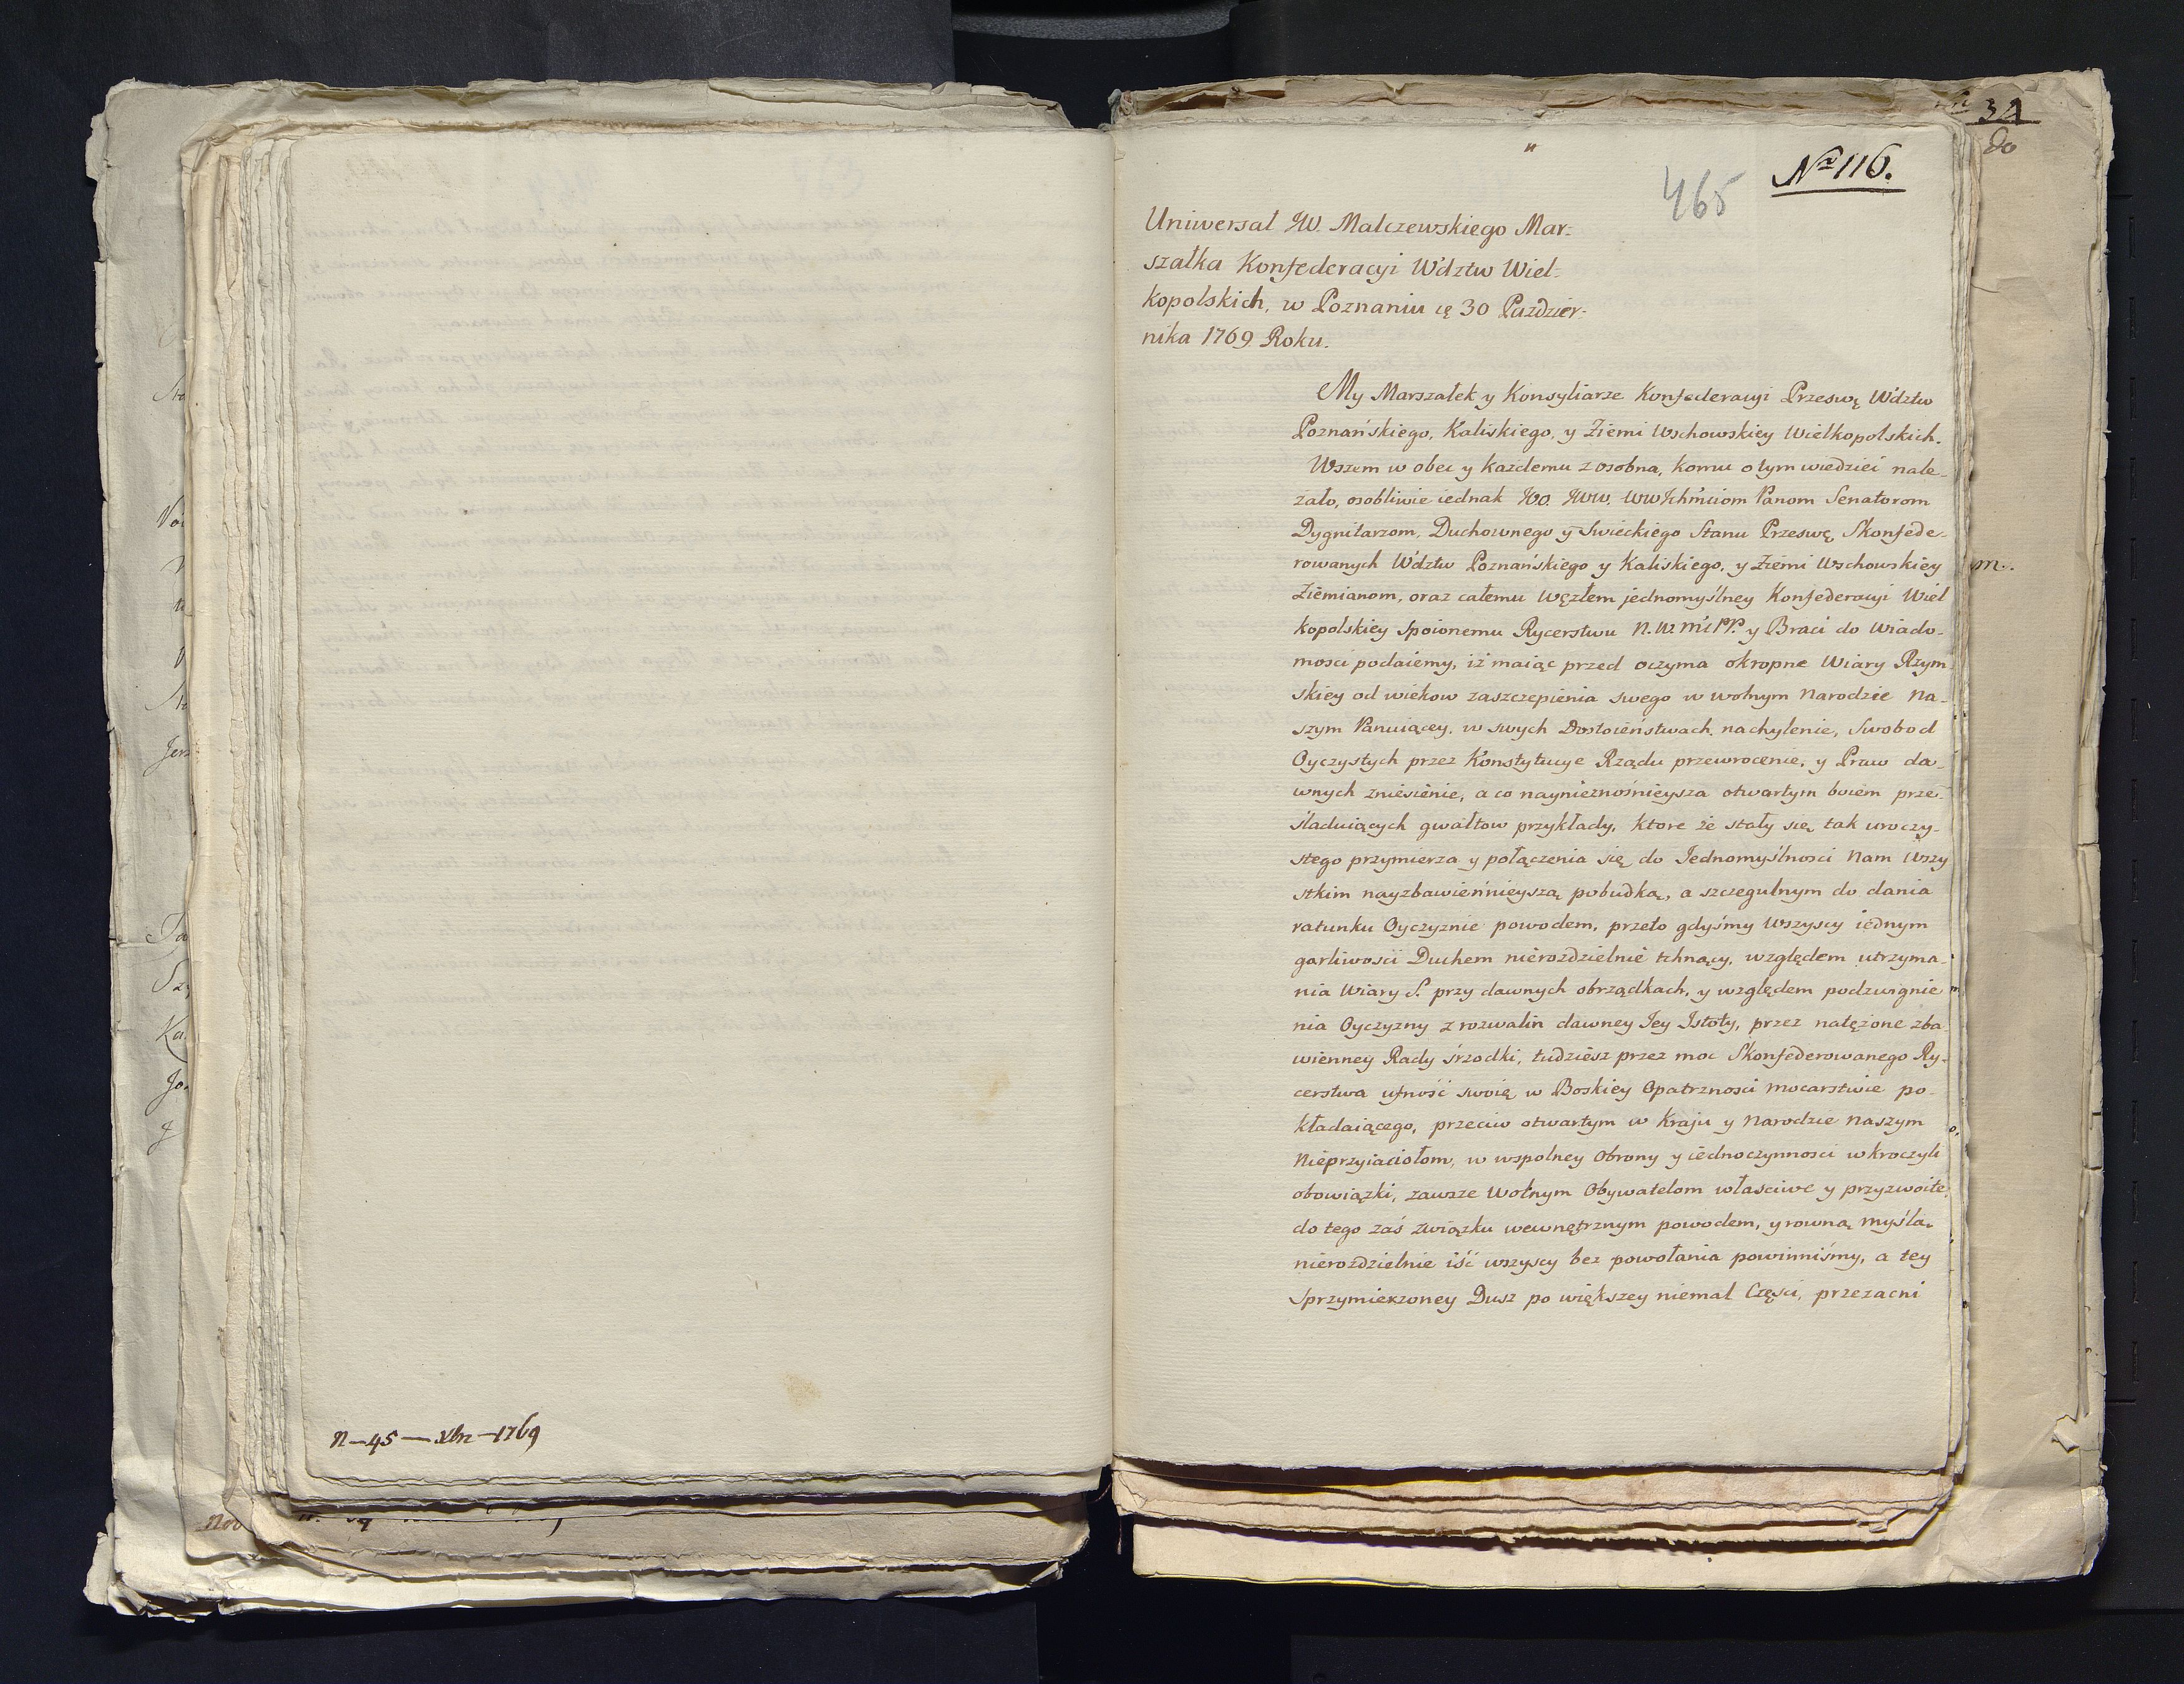 n–45–Xbr–1769
34
do
465
No 116.
Uniwersał JW. Malczewskiego Mar-
szałka Konfederacyi Wdztw Wiel-
kopolskich, w Poznaniu 30 Paździer-
nika 1769 Roku.
My Marszałek y Konsyliarze Konfederacyi Przeswę Wdztw
Poznańskiego, Kaliskiego, y Ziemi Wschowskiey Wielkopolskich.
Wszem w obec y każdemu z osobna, komu o tym wiedzieć nale-
zało, osobliwie iednak JO. JWW. WW Panom Senatorom
Dygnitarzom, Duchownego y Swieckiego Stanu Przeswę, Skonfede-
rowanych Wdztw Poznańskiego y Kaliskiego, y Ziemi Wschowskiey
Ziemianom, oraz całemu Węzłem jednomyślney Konfederacyi Wiel
kopolskiey Spoionemu Rycerstwu N. W. Mć PP. y Braci do Wiado-
mosci podaiemy, iż maiąc przed oczyma okropne Wiary Rzym
skiey od wiekow zaszczepienia swego w wolnym Narodzie Na-
szym Panuiącey, w swych Dostoieństwach nachylenie, Swobod
Oyczystych przez Konstytucye Rządu przewrocenie, y Praw da-
wnych zniesienie, a co naynieznośnieysza otwartym boiem prze-
śladuiących gwałtow przykłady, ktore że stały się, tak uroczy-
stego przymierza y połączenia się do Jednomyślnosci Nam Wszy
stkim nayzbawienńieyszą pobudką, a szczegulnym do dania
ratunku Oyczyznie powodem, przeto gdyśmy Wszyscy iednym
garliwosci Duchem nierozdzielnie tchnący, względem utrzyma-
nia Wiary S. przy dawnych obrządkach, y względem podzwignie
nia Oyczyzny z rozwalin dawney Jey Jstoty, przez natężone zba-
wienney Rady śrzodki, tudziesz przez moc Skonfederowanego Ry-
cerstwa ufność swoię w Boskiey Opatrznosci mocarstwie po-
kładaiącego, przeciw otwartym w Kraju y Narodzie Naszym
Nieprzyiaciołom, w wspolney Obrony y iednoczynnosci wkroczyli
obowiązki, zawsze Wolnym Obywatelom własciwe y przyzwoite,
do tego zaś związku wewnętrznym powodem, y rowną myślą
nierozdzielnie iść wszyscy bez powołania powinniśmy, a tey
Sprzymierzoney Dusz po większey niemal Częsci, przezacni